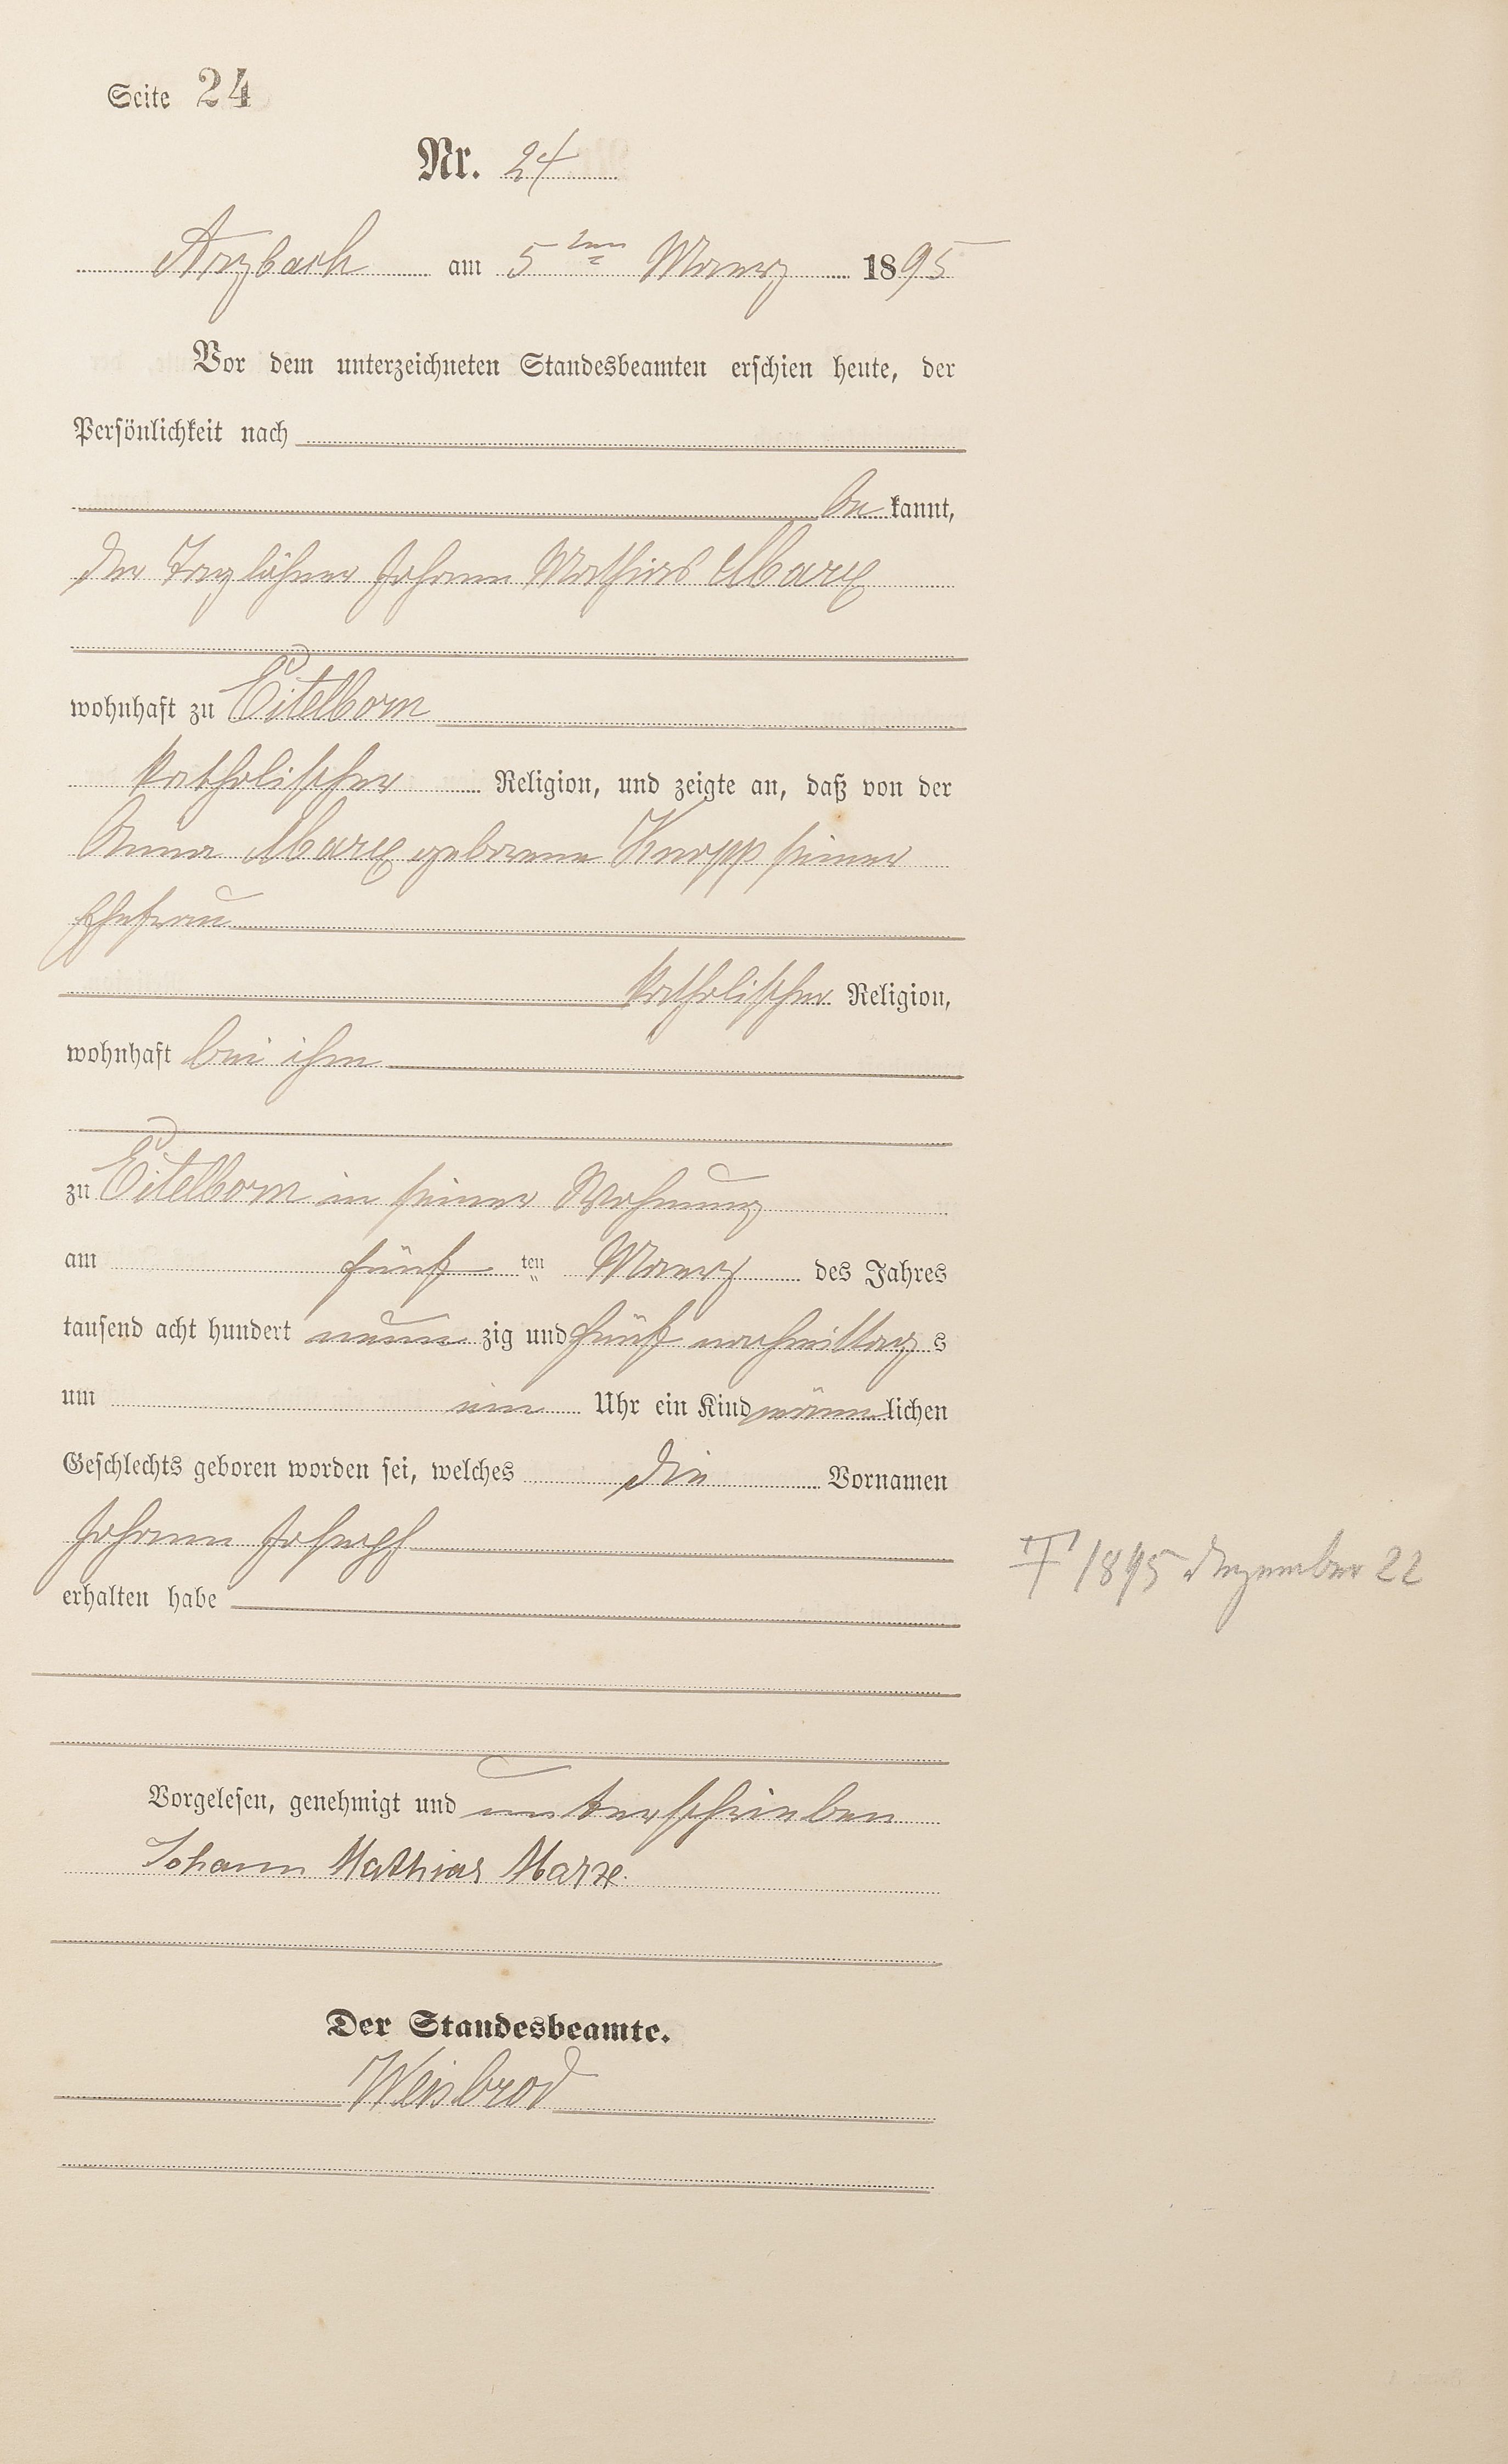 Seite 24
Nr. 24
Arzbach am 5ten Maerz 1895
Vor dem unterzeichneten Standesbeamten erschien heute, der
Persönlichkeit nach
be kannt,
der Taglöhner Johann Mathias Marx
wohnhaft zu Eitelborn
katholischer Religion, und zeigte an, daß von der
Anna Marx geborene Knopp seiner
Ehefrau
katholischer Religion,
wohnhaft bei ihm
zu Eitelborn in seiner Wohnung
am fünf ten Maerz des Jahres
tausend acht hundert neun zig und fünf nachmittag s
um ein Uhr ein Kind männ lichen
Geschlechts geboren worden sei, welches die Vornamen
Johann Joseph
† 1895 Dezember 22
erhalten habe
Vorgelesen, genehmigt und unterschrieben
Johann Mathias Marx.
Der Standesbeamte.
Weisbrod